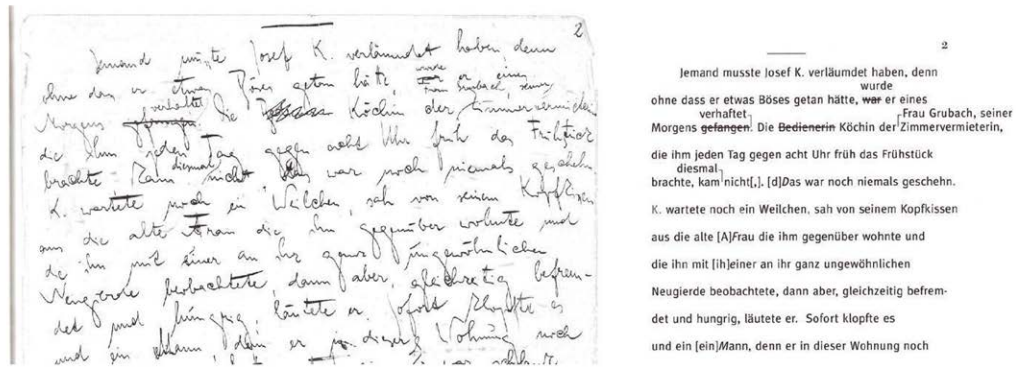 2
Jemand musste Josef K. verläumdet haben denn
wurde
ohne dass er etwas Böses getan hätte, war er eines
verhaftet Frau Grubach, seiner
Morgens gefangen. Die Bedienerin Köchin der Zimmervermieterin
die ihm jeden Tag gegen acht Uhr früh das Frühstück
diesmal
brachte kam nicht. Das war noch niemals geschehn.
K. wartete noch ein Weilchen, sah von seinem Kopfkissen
aus die alte Frau die ihm gegenüber wohnte und
die ihn mit einer an ihr ganz ungewöhnlichen
Neugierde beobachtete, dann aber, gleichzeitig befrem-
det und hungrig, läutete er. Sofort klopfte es
und ein Mann, den er in dieser Wohnung noch
2
Jemand musste Josef K. verläumdet haben, denn
wurde
ohne dass er etwas Böses getan hätte, war er eines
verhaftet Frau Grubach, seiner
Morgens gefangen. Die Bedienerin Köchin der Zimmervermieterin,
die ihm jeden Tag gegen acht Uhr früh das Frühstück
diesmal
brachte, kam nicht[,]. [d]Das war noch niemals geschehn.
K. wartete noch ein Weilchen, sah von seinem Kopfkissen
aus die alte [A]Frau die ihm gegenüber wohnte und
die ihn mit [ih]einer an ihr ganz ungewöhnlichen
Neugierde beobachtete, dann aber, gleichzeitig befrem-
det und hungrig, läutete er. Sofort klopfte es
und ein [ein]Mann, denn er in dieser Wohnung noch